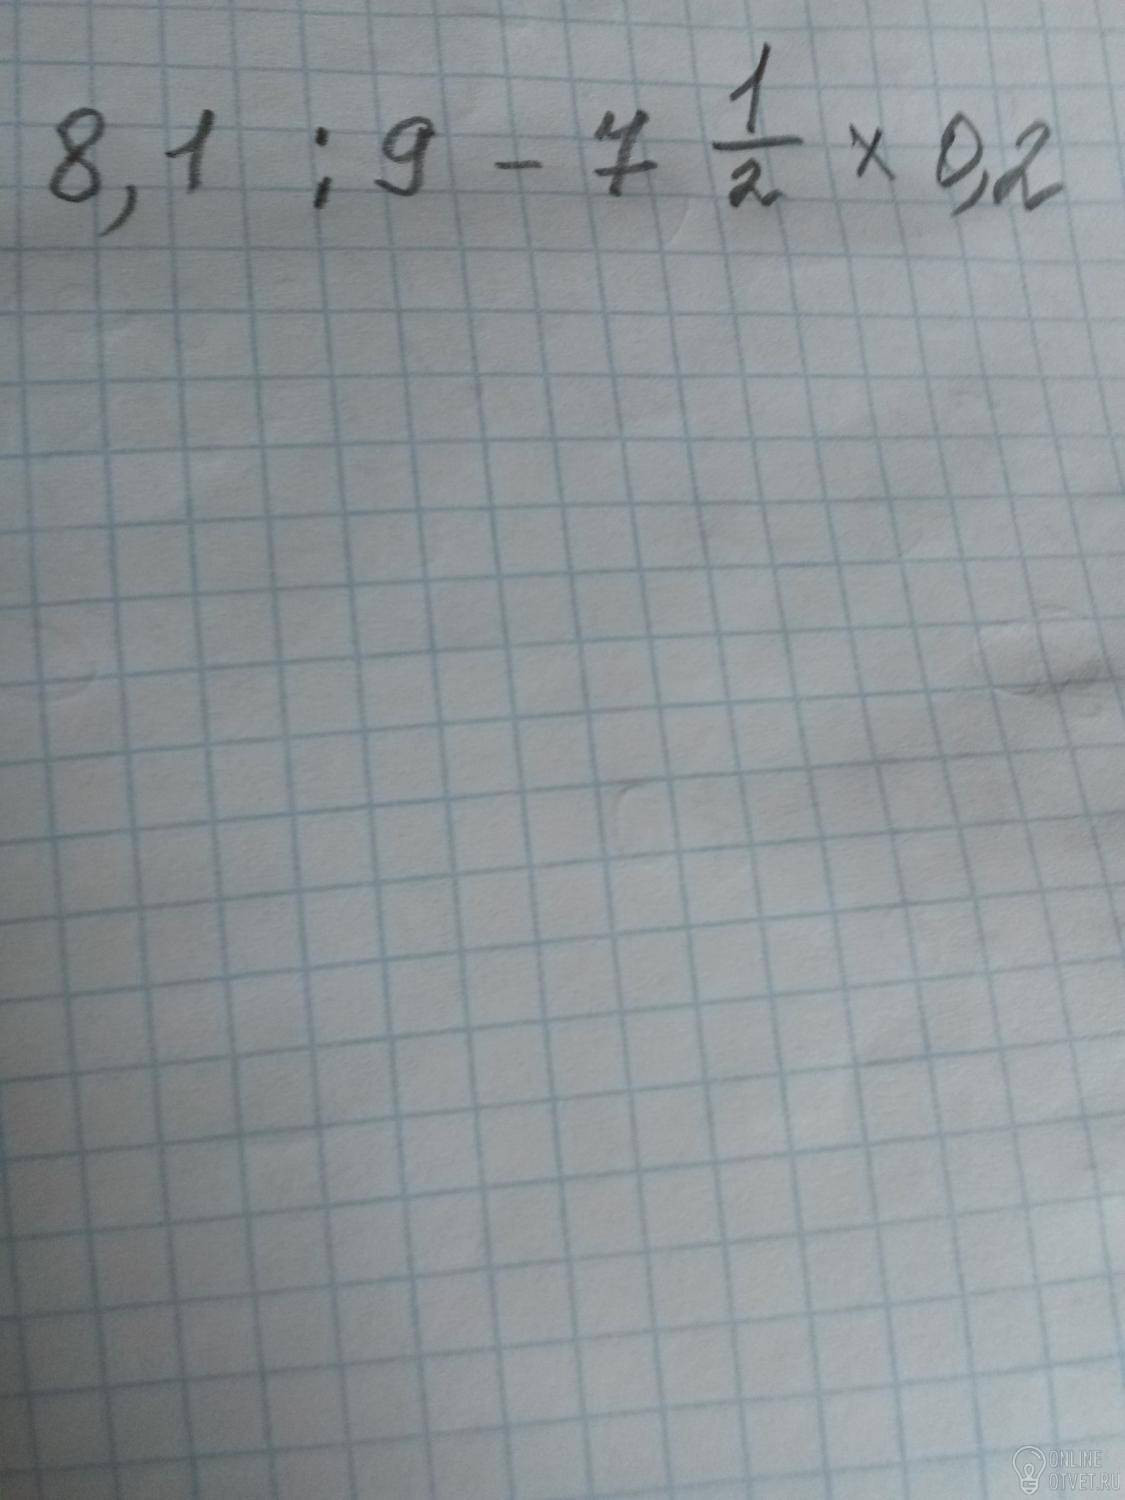 8,1 : 9 - 7 1/2 × 0,2
ONLINE
OTVET.RU